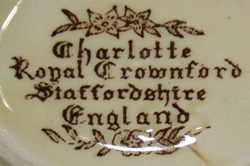 Charlotte
Royal Crownford
Staffordshire
England